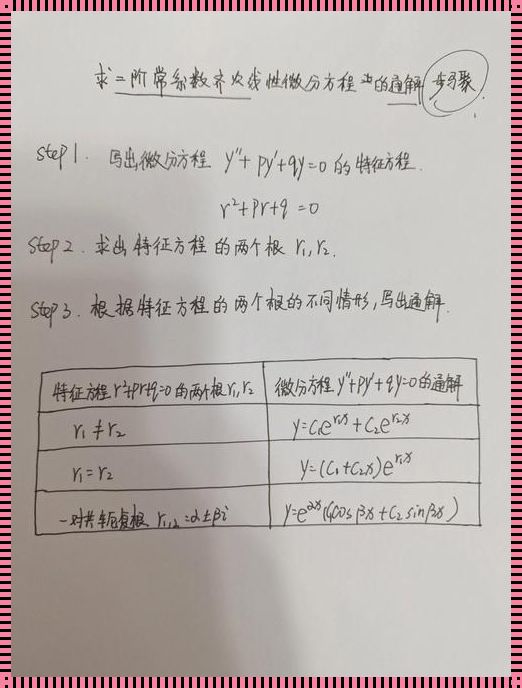 求二阶常系数齐次线性微分方程的通解 步骤
step 1. 写出微分方程 y''+py'+qy=0 的特征方程.
r²+pr+q=0
step 2. 求出特征方程的两个根 r₁,r₂.
step 3. 根据特征方程的两个根的不同情形,写出通解.
特征方程r²+pr+q=0的两个根r₁,r₂ 微分方程y''+py'+qy=0的通解
r₁≠r₂ y=C₁e^{r₁x}+C₂e^{r₂x}
r₁=r₂ y=(C₁+C₂x)e^{r₁x}
一对共轭复根 r₁,₂=α±βi y=e^{αx}(C₁cosβx+C₂sinβx)